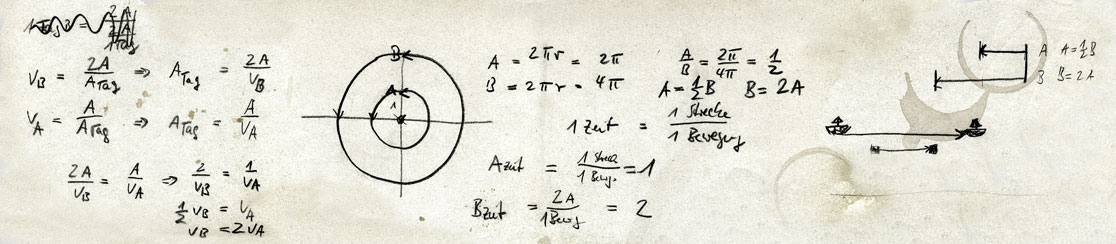 V_B = 2A / A_Tag ⇒ A_Tag = 2A / V_B
V_A = A / A_Tag ⇒ A_Tag = A / V_A
2A / V_B = A / V_A ⇒ 2 / V_B = 1 / V_A
1/2 V_B = V_A
V_B = 2 V_A
B
A
1
A = 2πr = 2π
B = 2πr = 4π
A/B = 2π/4π = 1/2
A = 1/2 B B = 2A
1 Zeit = 1 Strecke / 1 Bewegung
A Zeit = 1 Streck / 1 Bewg. = 1
B Zeit = 2A / 1 Bewg = 2
A A = 1/2 B
B B = 2A